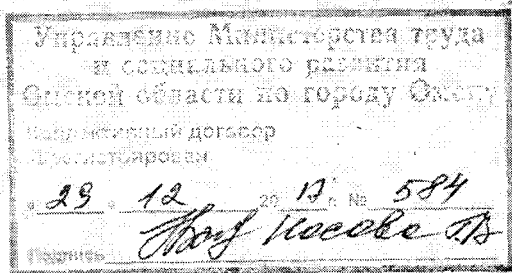 Управление Министерства труда
и социального развития
Омской области по городу Омску
Коллективный договор
зарегистрирован
" 29 " 12 20 17 г. № 584
Подпись Носова Т.В